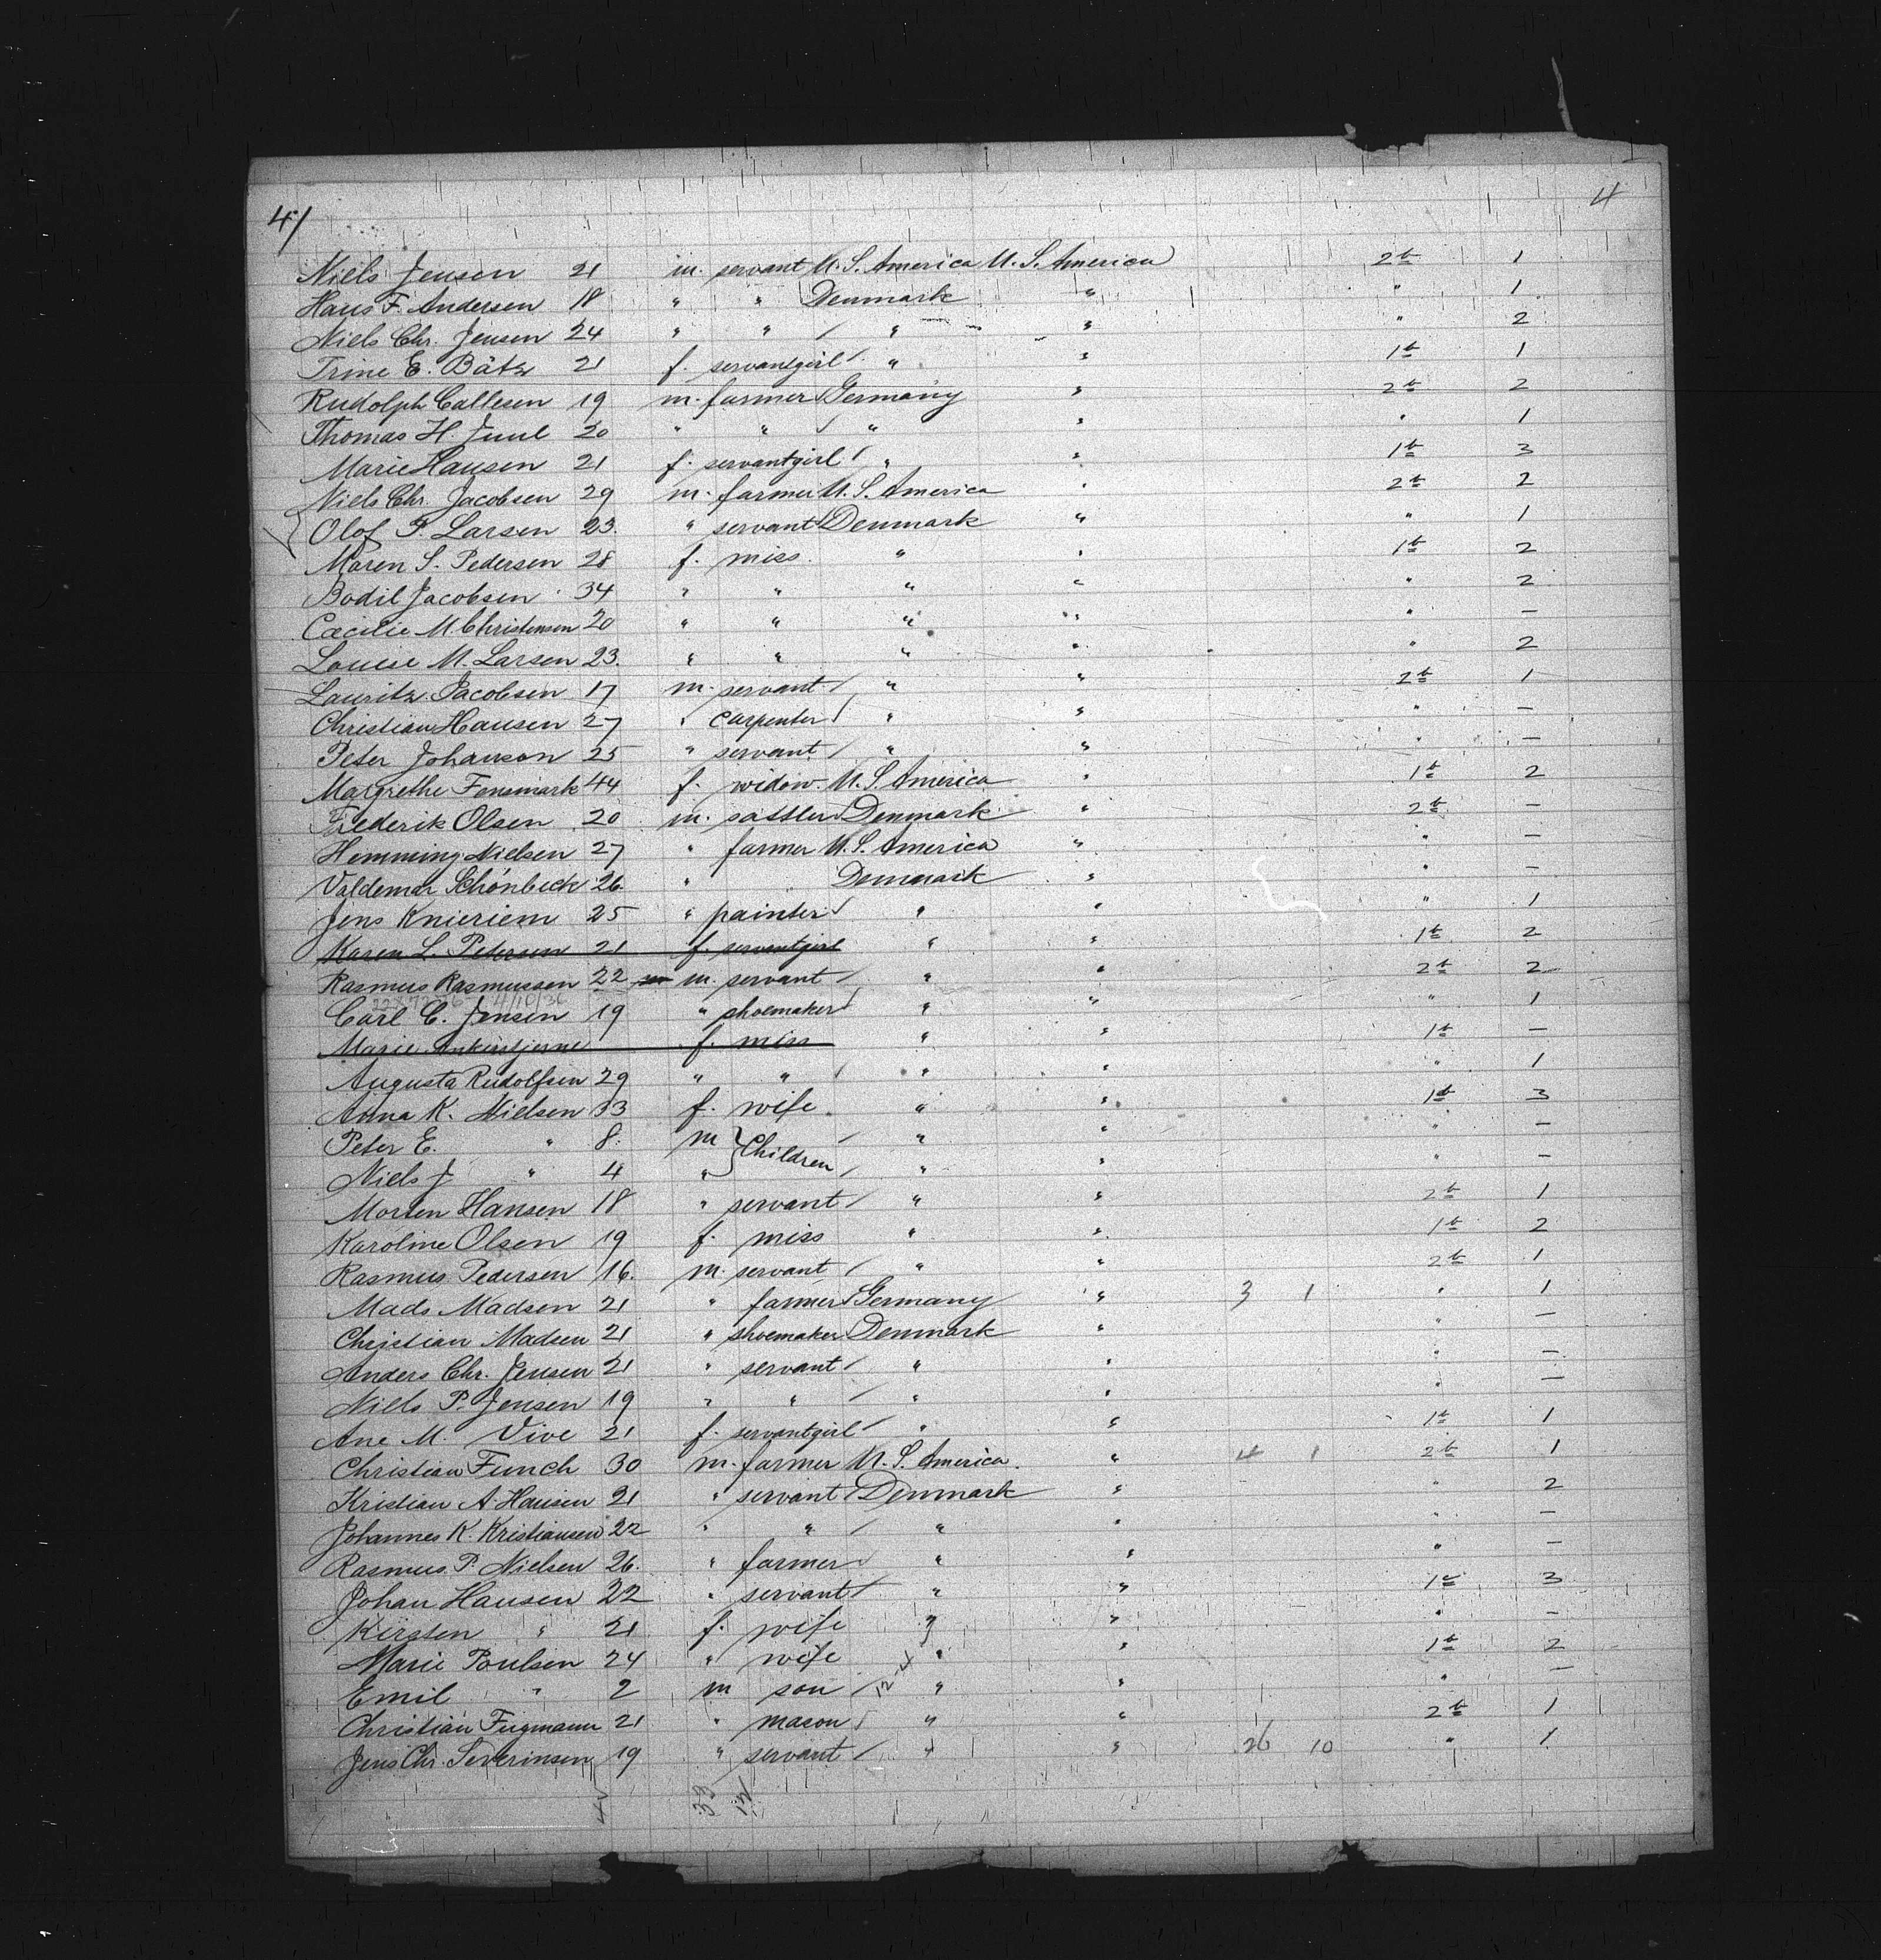 4/ 4
Niels Jensen 21 m. servant U.S. America U.S. America 2b 1
Hans F. Andersen 18 " " Denmark " " 1
Niels Chr. Jensen 24 " " / " " " 2
Trine E. Bätz 21 f. servantgirl / " " 1b 1
Rudolph Callesen 19 m. farmer Germany " 2b 2
Thomas H. Juul 20 " " / " " " 1
Marie Hansen 21 f. servantgirl / " " 1b 3
Niels Chr. Jacobsen 29 m. farmer U.S. America " 2b 2
Olof P. Larsen 23. " servant Denmark " " 1
Maren S. Pedersen 28 f. miss. " " 1b 2
Bodil Jacobsen 34 " " " " " 2
Cæcilie M. Christensen 20 " " " " " —
Louise M. Larsen 23. " " " " " 2
Lauritz Jacobsen 17 m. servant / " " 2b 1
Christian Hansen 27 " carpenter / " " " —
Peter Johanson 25 " servant / " " " —
Margrethe Fensmark 44 f. widow. U.S. America " 1b 2
Frederik Olsen 20 m. sattler Denmark " 2b —
Hemming Nielsen 27 " farmer U.S. America " " —
Valdemar Schönbeck 26. " Denmark " " —
Jens Knieriem 25 " painter / " " " 1
Karen L. Pedersen 21 f. servantgirl " " 1b 2
Rasmus Rasmussen 22 m. servant / " " 2b 2
Carl C. Jensen 19 " shoemaker / " " " 1
Marie Ankerstjerne f. miss " " 1b —
Augusta Rudolfsen 29 " " / " " " 1
Anna K. Nielsen 33 f. wife. " " 1b 3
Peter E. " 8. m } Children / " " " —
Niels J " 4 " / " " " —
Morten Hansen 18 " servant / " " 2b 1
Karoline Olsen 19 f. miss " " 1b 2
Rasmus Pedersen 16. m. servant / " " 2b 1
Mads Madsen 21 " farmer Germany " 3 1 " 1
Christian Madsen 21 " shoemaker Denmark " " —
Anders Chr. Jensen 21 " servant / " " " —
Niels P. Jensen 19 " " / " " " —
Ane M. Vive 21 f. servantgirl / " " 1b 1
Christian Funch 30 m. farmer U.S. America. " 4 1 2b 1
Kristian A. Hansen 21 " servant Denmark " " 2
Johannes K. Kristiansen 22 " " / " " " —
Rasmus P. Nielsen 26. " farmer / " " " —
Johan Hansen 22 " servant / " " 1b 3
Kirsten " 21 f. wife " " " —
Marie Poulsen 24 " wife " " 1b 2
Emil " 2 m son / " " " —
Christian Fugmann 21 " mason / " " 2b 1
Jens Chr. Severinsen 19 " servant / " " 26 10 " 1
33 12